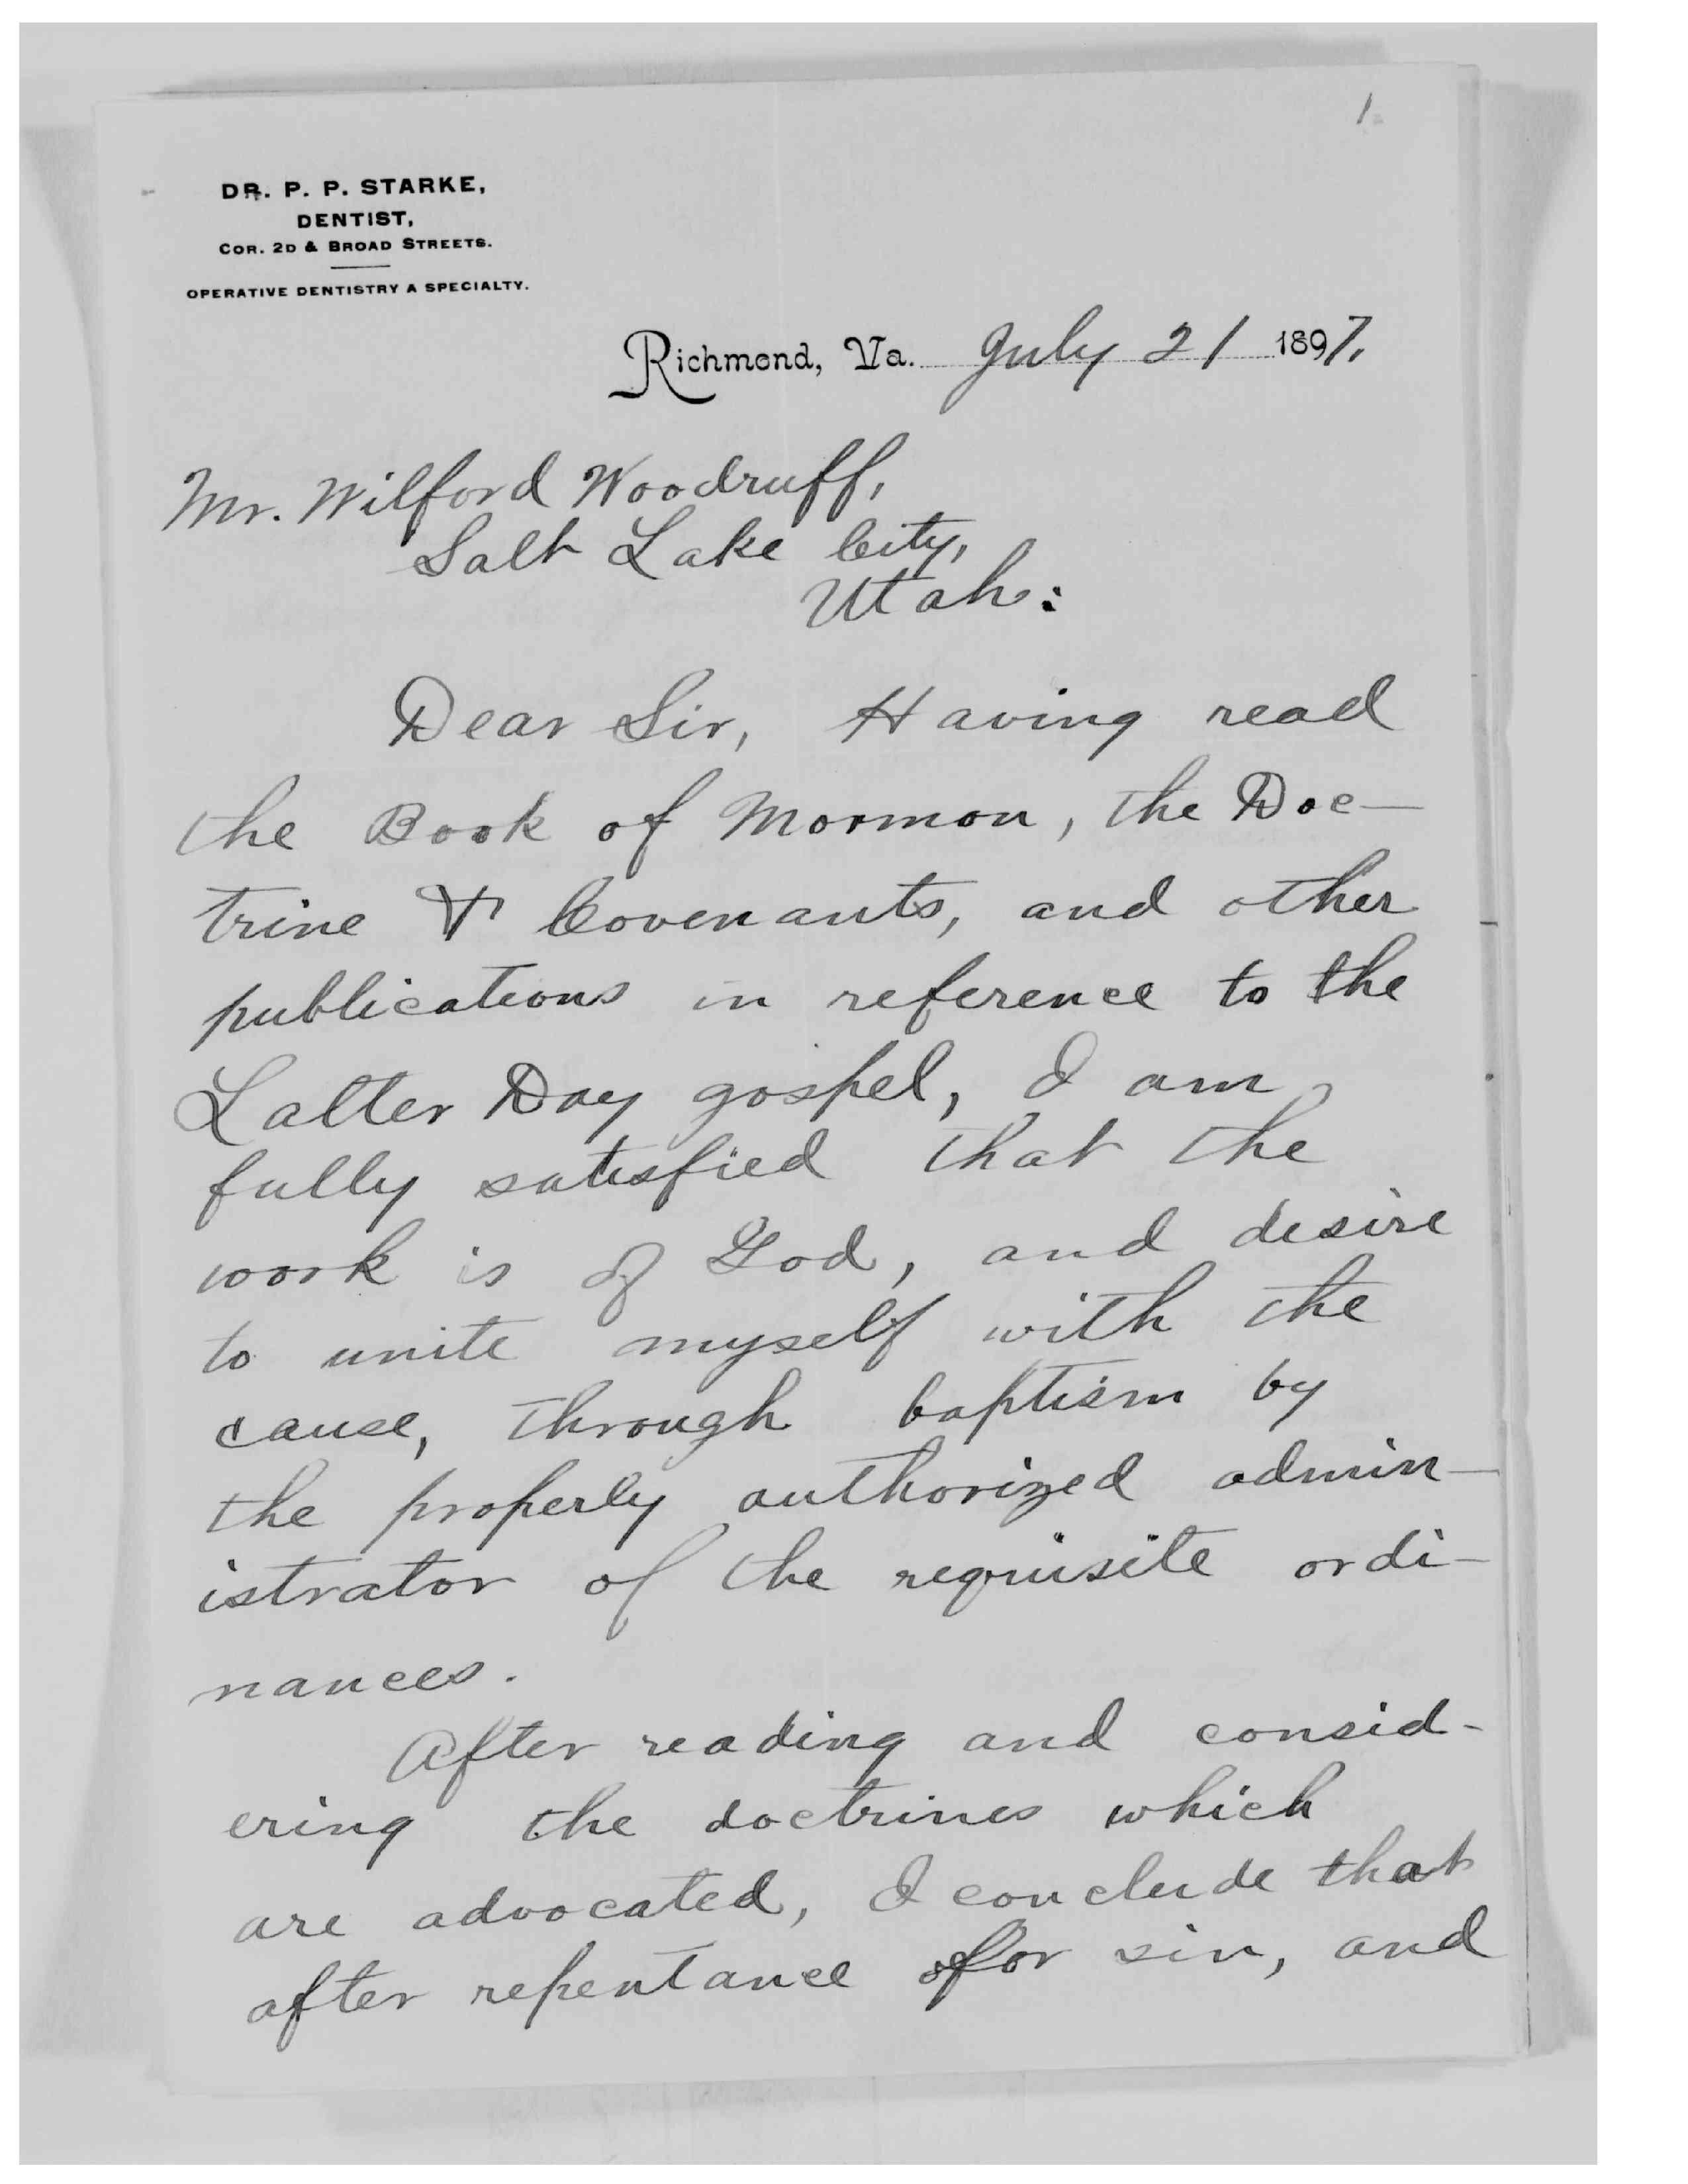 1.
DR. P. P. STARKE,
DENTIST,
COR. 2D & BROAD STREETS.
OPERATIVE DENTISTRY A SPECIALTY.
Richmond, Va. July 21 1897.
Mr. Wilford Woodruff,
Salt Lake City,
Utah:
Dear Sir, Having read
the Book of Mormon, the Doc-
trine & Covenants, and other
publications in reference to the
Latter Day gospel, I am
fully satisfied that the
work is of God, and desire
to unite myself with the
cause, through baptism by
the properly authorized admin-
istrator of the requisite ordi-
nances.
After reading and consid-
ering the doctrines which
are advocated, I conclude that
after repentance for sin, and